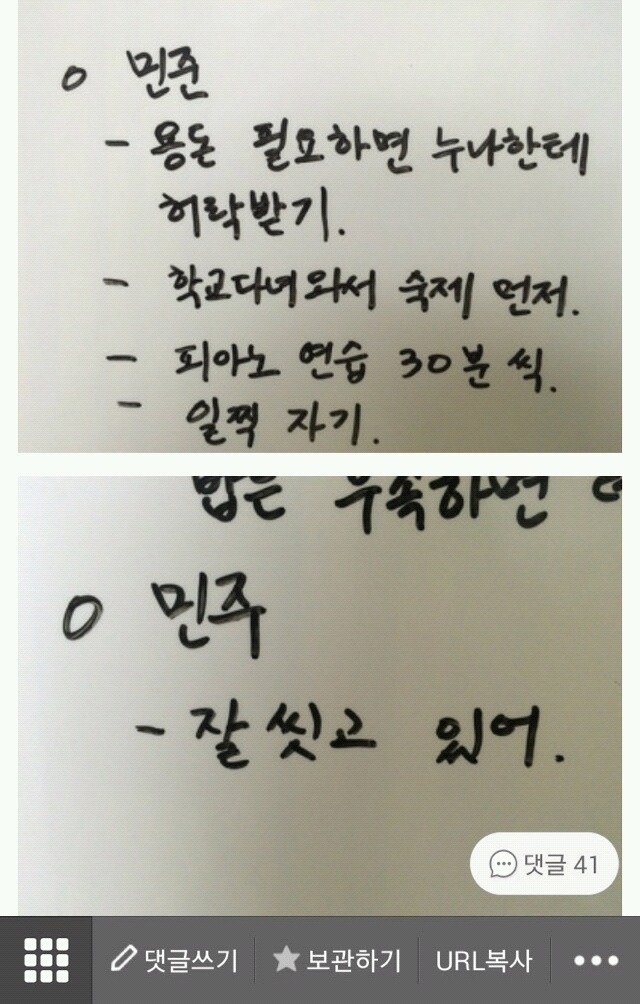 o 민준
- 용돈 필요하면 누나한테
허락받기.
- 학교다녀와서 숙제 먼저.
- 피아노 연습 30분 씩.
- 일찍 자기.
부족하면
o 민주
- 잘 씻고 있어.
댓글 41
댓글쓰기 보관하기 URL복사